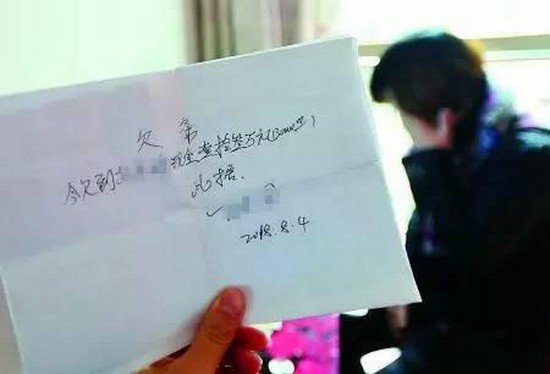 欠条
今欠到现金叁拾万元(300000)
此据.
2018.8.4